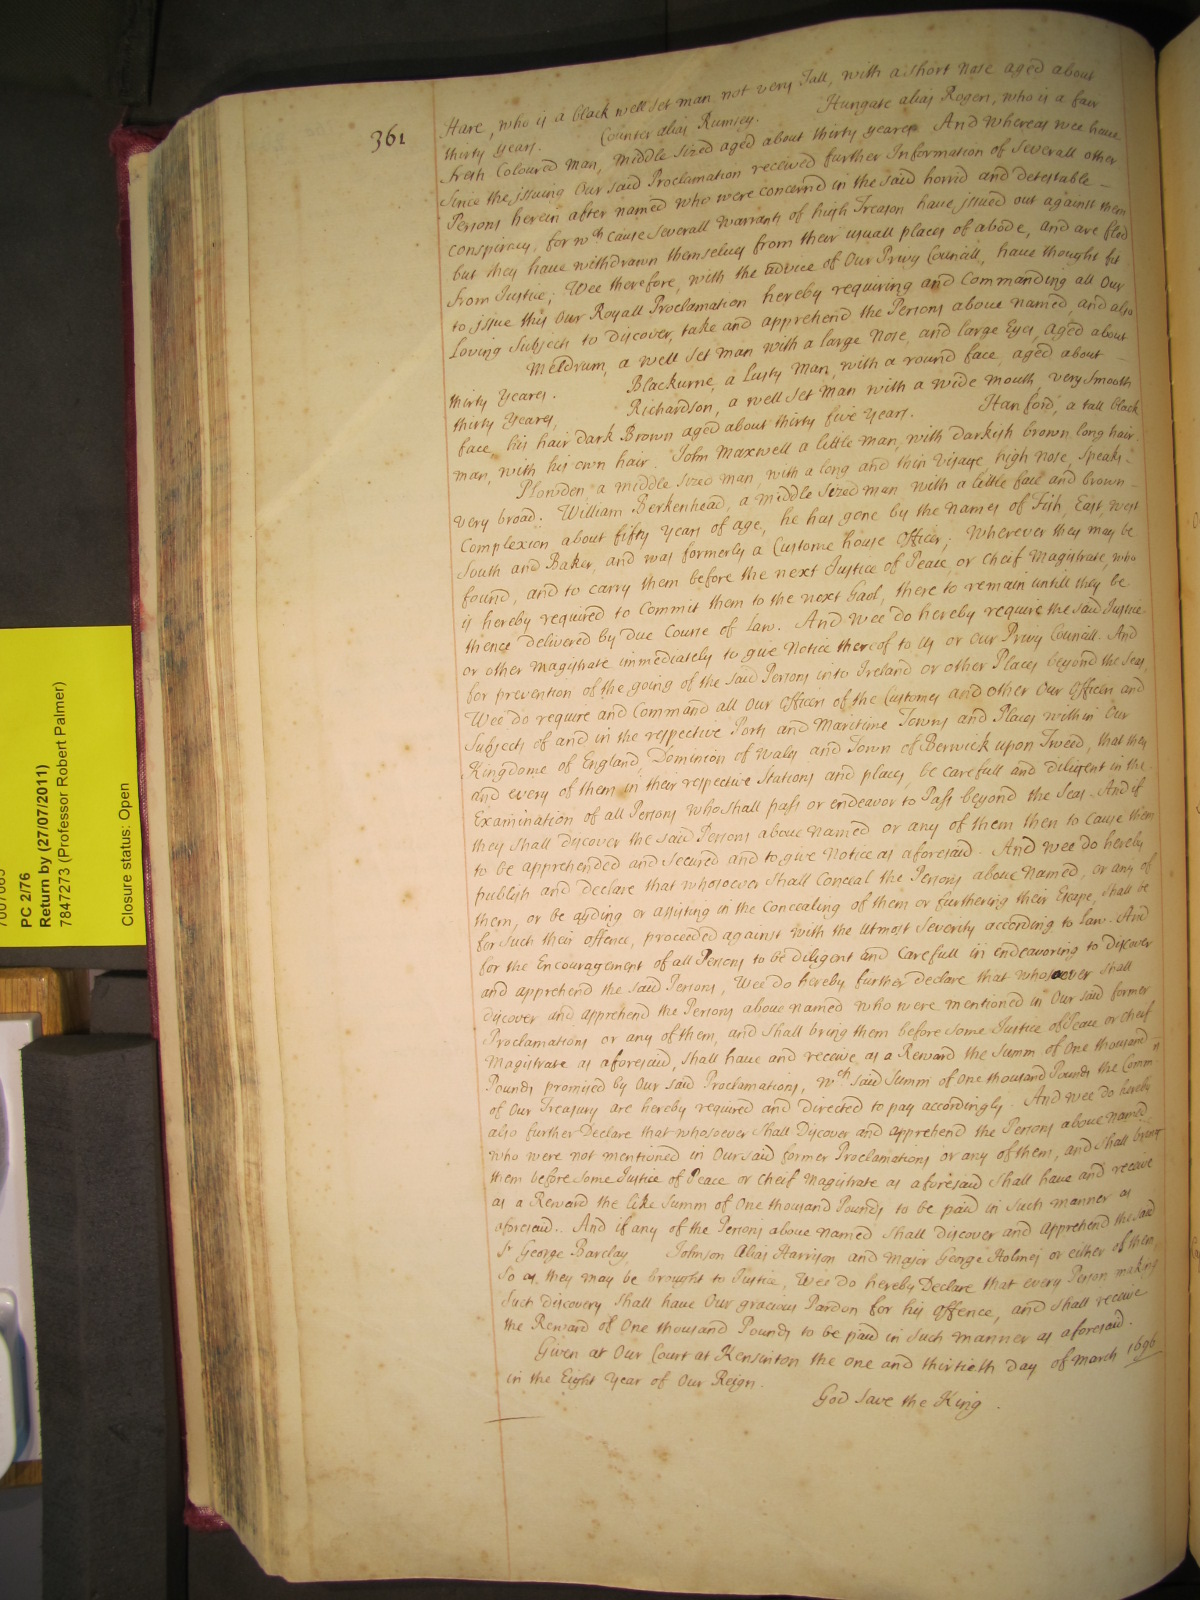 361
Hare, who is a black well set man not very Tall, with a short Nose aged about
thirty years. Counter alias Rumsey. Hungate alias Rogers, who is a fair
fresh Coloured man, middle sized aged about thirty yeares And whereas wee have
Since the issuing Our said Proclamation received further Information of Severall other
Persons herein after named who were concernd in the said horrid and detestable
conspiracy, for wch cause Severall warrants of high Treason have issued out against them
but they have withdrawn themselves from their usuall places of abode, and are fled
from Justice; Wee therefore, with the advice of Our Privy Councill, have thought fit
to issue this Our Royall Proclamation hereby requiring and Commanding all Our
Loving Subjects to discover, take and apprehend the Persons above named, and also
Meldrum, a well set man with a large Nose, and large Eyes, aged about
thirty Yeares. Blackurne, a Lusty Man, with a round face, aged about
thirty Yeares, Richardson, a well set man with a wide mouth, very smooth
face, his hair dark Brown aged about thirty five years. Hanford, a tall black
man, with his own hair. John Maxwell a little man, with darkish brown long hair.
Plowden, a middle sized man, with a long and thin visage, high nose, speaks
very broad. William Berkenhead, a middle sized man with a little face and brown
Complexion about fifty years of age, he has gone by the names of Fish, East, west
South and Baker, and was formerly a Custome house Officer; Wherever they may be
found, and to carry them before the next Justice of Peace, or cheif Magistrate, who
is hereby required to Commit them to the next Gaol, there to remain untill they be
thence delivered by due Course of Law. And wee do hereby require the said Justice
or other Magistrate immediately to give Notice thereof to Us or our Privy Councill. And
for prevention of the going of the said Persons into Ireland or other Places beyond the Seas,
Wee do require and Command all Our Officers of the Customes and other Our Officers and
Subjects of and in the respective Ports and Maritime Towns and Places within Our
Kingdome of England, Dominion of Wales and Town of Berwick upon Tweed, that they
and every of them in their respective Stations and places, be carefull and diligent in the
Examination of all Persons who shall pass or endeavor to Pass beyond the Seas. And if
they shall discover the said Persons above Named or any of them then to cause them
to be apprehended and secured and to give Notice as aforesaid. And wee do hereby
publish and declare that whosoever shall Conceal the Persons above Named, or any of
them, or be ayding or assisting in the Concealing of them or furthering their Escape, shall be
for such their offence, proceeded against with the utmost Severity according to Law. And
for the Encouragement of all Persons to be diligent and Carefull in endeavoring to discover
and apprehend the said Persons, Wee do hereby further declare that whosoever shall
discover and apprehend the Persons above Named who were mentioned in Our said former
Proclamations or any of them, and shall bring them before some Justice of Peace or cheif
Magistrate as aforesaid, shall have and receive as a Reward the Summ of One thousand
Pounds promised by Our said Proclamations, wch said Summ of one thousand Pounds the Commrs
of Our Treasury are hereby required and directed to pay accordingly. And wee do hereby
also further Declare that whosoever shall Discover and apprehend the Persons above Named
who were not mentioned in Our said former Proclamations or any of them, and shall bring
them before some Justice of Peace or cheif Magistrate as aforesaid shall have and receive
as a Reward the like Summ of One thousand Pounds to be paid in such manner as
aforesaid. And if any of the Persons above Named shall discover and apprehend the said
Sr George Barclay Johnson Alias Harrison and Major George Holmes or either of them,
So as they may be brought to Justice, Wee do hereby Declare that every Person making
such discovery shall have Our gracious Pardon for his offence, and shall receive
the Reward of One thousand Pounds to be paid in such manner as aforesaid.
Given at Our Court at Kensinton the one and thirtieth day of March 1696
in the Eight Year of Our Reign.
God save the King.
PC 2/76
Return by (27/07/2011)
7847273 (Professor Robert Palmer)
Closure status: Open